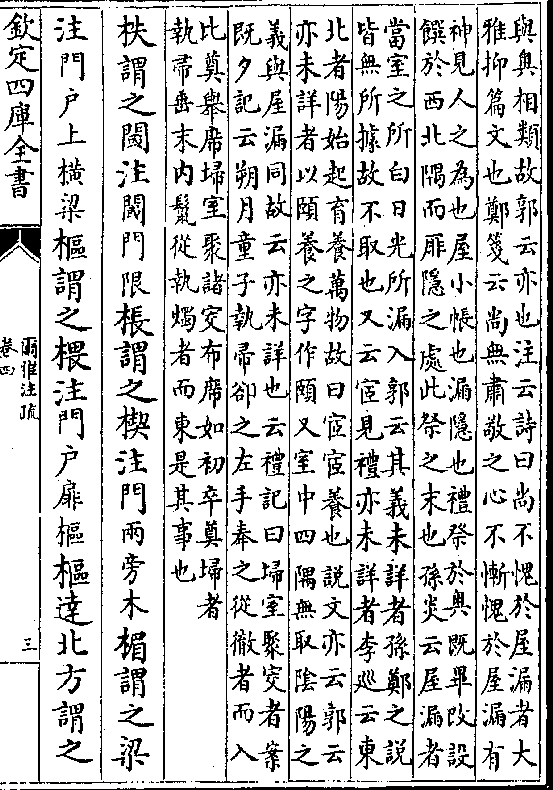 與奥相類故郭云亦也注云詩曰尚不愧於屋漏者大
雅抑篇文也鄭箋云尚無肅敬之心不慚愧於屋漏有
神見人之為也屋小帳也漏隱也禮祭於奥既畢改設
饌於西北隅而厞隱之處此祭之末也孫炎云屋漏者
當室之所白日光所漏入郭云其義未詳者孫鄭之說
皆無所據故不取也又云宧見禮亦未詳者李廵云東
北者陽始起育養萬物故曰宧宧養也說文亦云郭云
亦未詳者以頤養之字作頤又室中四隅無取隂陽之
義與屋漏同故云亦未詳也云禮記曰埽室聚窔者案
既夕記云朔月童子執帚卻之左手奉之從徹者而入
比奠舉席埽室聚諸窔布席如初卒奠埽者
執帚垂末内鬛從執燭者而東是其事也
柣謂之閾注閾門限棖謂之楔注門兩旁木楣謂之梁
注門户上橫梁樞謂之椳注門户扉樞樞達北方謂之
欽定四庫全書
爾雅注疏
卷四
三